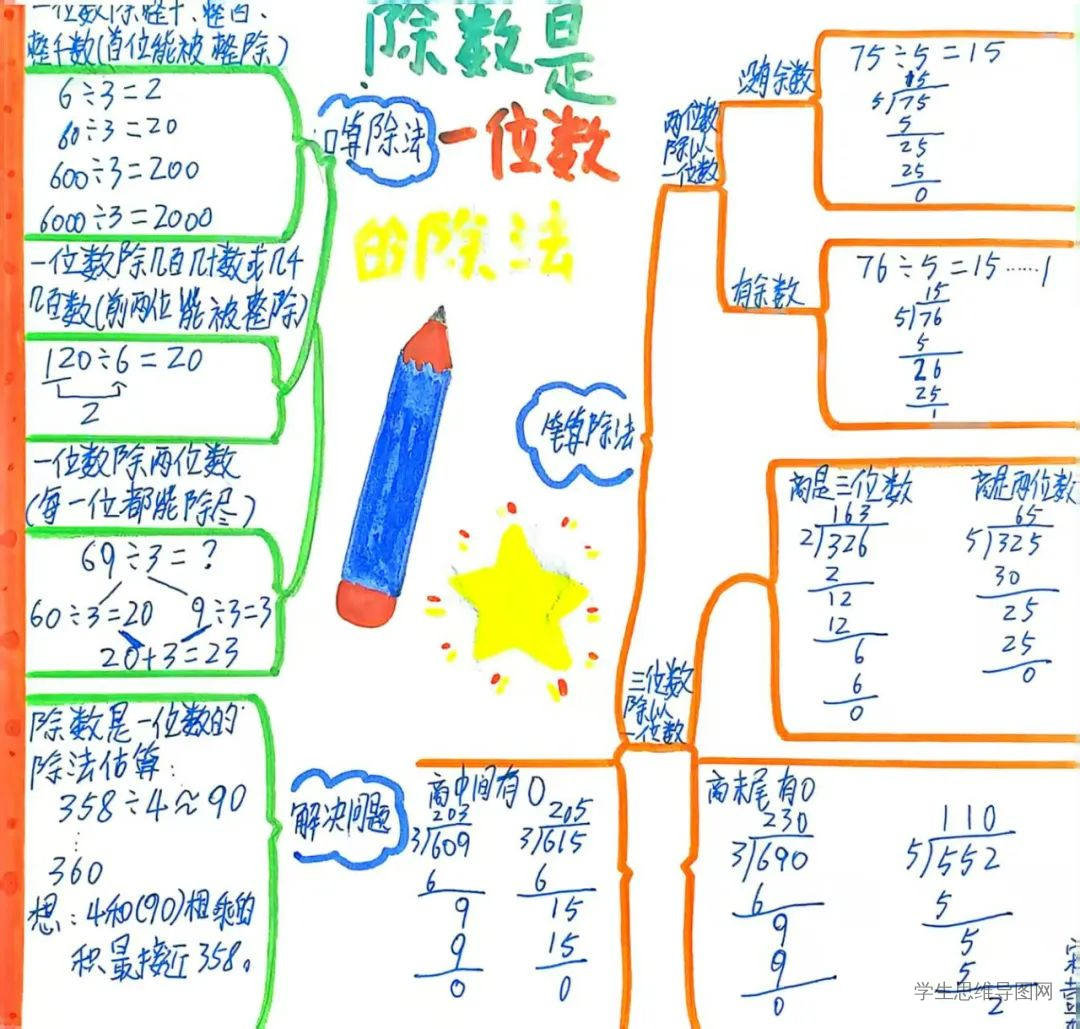 除数是
一位数
的除法
口算除法
一位数除整十、整百、
整千数(首位能被整除)
6÷3=2
60÷3=20
600÷3=200
6000÷3=2000
一位数除几百几十数或几千
几百数(前两位能被整除)
120÷6=20
2
一位数除两位数
(每一位都能除尽)
69÷3=?
60÷3=20 9÷3=3
20+3=23
解决问题
除数是一位数的
除法估算:
358÷4≈90
360
想:4和(90)相乘的
积最接近358。
笔算除法
两位数
除以
一位数
没有余数
75÷5=15
15
5)75
5
25
25
0
有余数
76÷5=15……1
15
5)76
5
26
25
1
三位数
除以
一位数
商是三位数
163
2)326
2
12
12
6
6
0
商是两位数
65
5)325
30
25
25
0
商中间有0
203
3)609
6
9
9
0
205
3)615
6
15
15
0
商末尾有0
230
3)690
6
9
9
0
110
5)552
5
5
5
2
学生思维导图网